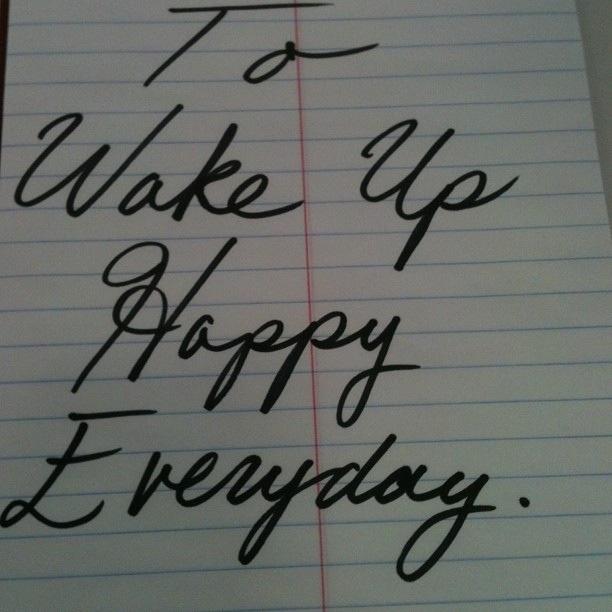 To
Wake Up
Happy
Everyday.